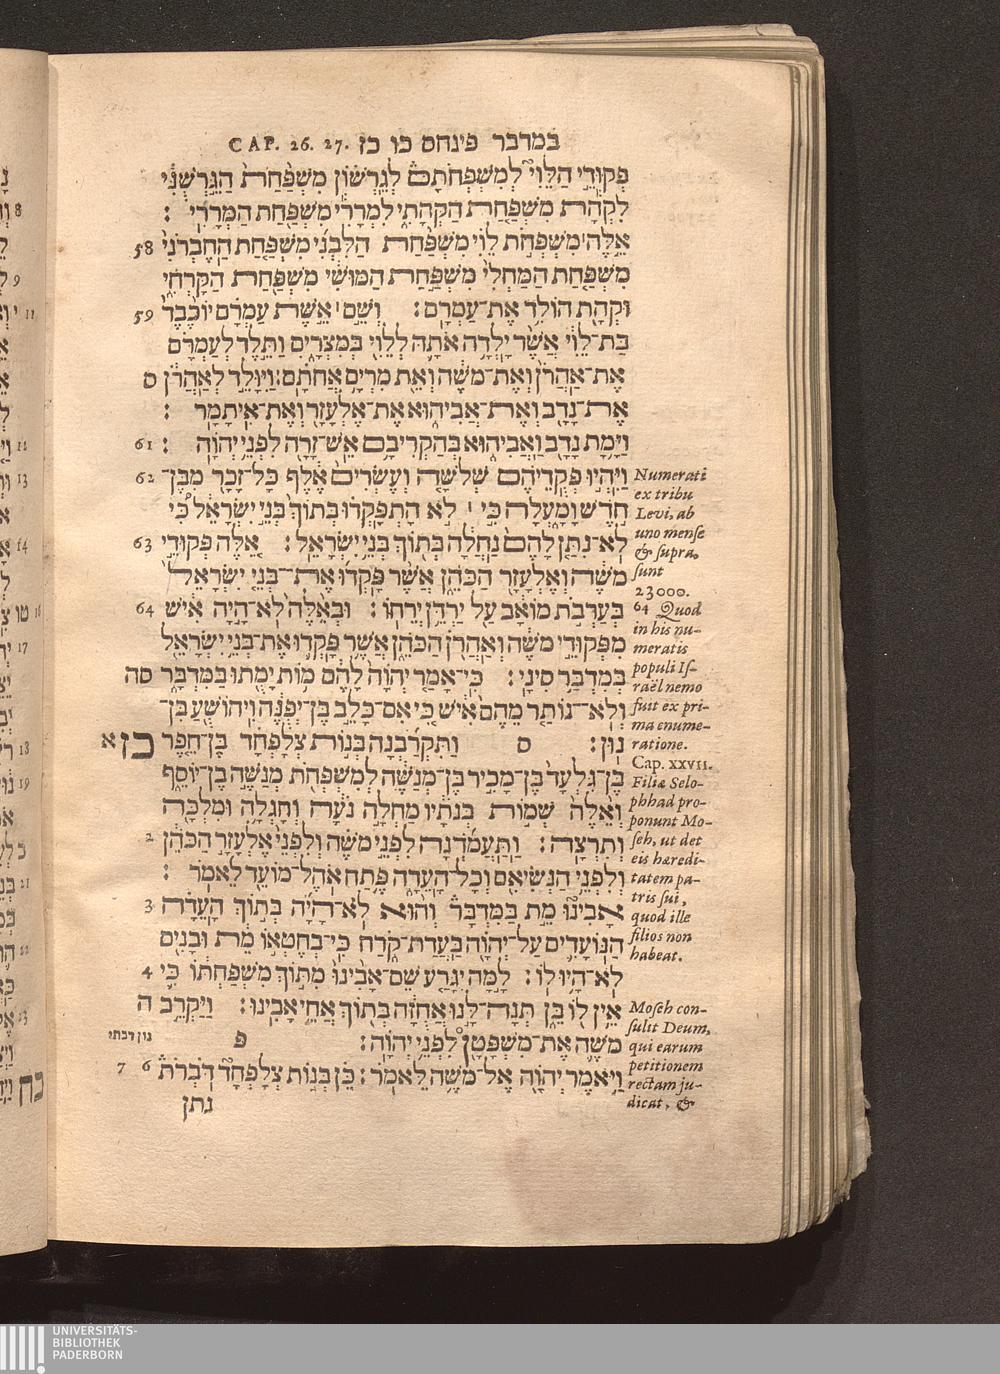 CAP. 26. 27. במדבר פינחס כו כז
פְּקוּדֵי הַלֵּוִי לְמִשְׁפְּחֹתָם לְגֵרְשׁוֹן מִשְׁפַּחַת הַגֵּרְשֻׁנִּי
לִקְהָת מִשְׁפַּחַת הַקְּהָתִי לִמְרָרִי מִשְׁפַּחַת הַמְּרָרִי :
58 אֵלֶּה מִשְׁפְּחֹת לֵוִי מִשְׁפַּחַת הַלִּבְנִי מִשְׁפַּחַת הַחֶבְרֹנִי
מִשְׁפַּחַת הַמַּחְלִי מִשְׁפַּחַת הַמּוּשִׁי מִשְׁפַּחַת הַקָּרְחִי
59 וּקְהָת הוֹלִד אֶת־עַמְרָם : וְשֵׁם אֵשֶׁת עַמְרָם יוֹכֶבֶד
בַּת־לֵוִי אֲשֶׁר יָלְדָה אֹתָהּ לְלֵוִי בְּמִצְרָיִם וַתֵּלֶד לְעַמְרָם
ס אֶת־אַהֲרֹן וְאֶת־מֹשֶׁה וְאֵת מִרְיָם אֲחֹתָם : וַיִּוָּלֵד לְאַהֲרֹן
אֶת־נָדָב וְאֶת־אֲבִיהוּא אֶת־אֶלְעָזָר וְאֶת־אִיתָמָר :
61 וַיָּמָת נָדָב וַאֲבִיהוּא בְּהַקְרִיבָם אֵשׁ־זָרָה לִפְנֵי יְהוָֹה :
62 וַיִּהְיוּ פְקֻדֵיהֶם שְׁלֹשָׁה וְעֶשְׂרִים אֶלֶף כָּל־זָכָר מִבֶּן־
חֹדֶשׁ וָמָעְלָה כִּי לֹא הָתְפָּקְדוּ בְּתוֹךְ בְּנֵי יִשְׂרָאֵל כִּי
63 לֹא־נִתַּן לָהֶם נַחֲלָה בְּתוֹךְ בְּנֵי יִשְׂרָאֵל : אֵלֶּה פְּקוּדֵי
מֹשֶׁה וְאֶלְעָזָר הַכֹּהֵן אֲשֶׁר פָּקְדוּ אֶת־בְּנֵי יִשְׂרָאֵל
64 בְּעַרְבֹת מוֹאָב עַל יַרְדֵּן יְרֵחוֹ : וּבְאֵלֶּה לֹא־הָיָה אִישׁ
מִפְּקוּדֵי מֹשֶׁה וְאַהֲרֹן הַכֹּהֵן אֲשֶׁר פָּקְדוּ אֶת־בְּנֵי יִשְׂרָאֵל
סה בְּמִדְבַּר סִינָי : כִּי־אָמַר יְהוָֹה לָהֶם מוֹת יָמֻתוּ בַּמִּדְבָּר
וְלֹא־נוֹתַר מֵהֶם אִישׁ כִּי אִם־כָּלֵב בֶּן־יְפֻנֶּה וִיהוֹשֻׁעַ בִּן־
כז א נוּן : ס וַתִּקְרַבְנָה בְּנוֹת צְלָפְחָד בֶּן־חֵפֶר
בֶּן־גִּלְעָד בֶּן־מָכִיר בֶּן־מְנַשֶּׁה לְמִשְׁפְּחֹת מְנַשֶּׁה בֶן־יוֹסֵף
וְאֵלֶּה שְׁמוֹת בְּנֹתָיו מַחְלָה נֹעָה וְחָגְלָה וּמִלְכָּה
2 וְתִרְצָה : וַתַּעֲמֹדְנָה לִפְנֵי מֹשֶׁה וְלִפְנֵי אֶלְעָזָר הַכֹּהֵן
וְלִפְנֵי הַנְּשִׂיאִם וְכָל־הָעֵדָה פֶּתַח אֹהֶל־מוֹעֵד לֵאמֹר :
3 אָבִינוּ מֵת בַּמִּדְבָּר וְהוּא לֹא־הָיָה בְּתוֹךְ הָעֵדָה
הַנּוֹעָדִים עַל־יְהוָֹה בַּעֲדַת־קֹרַח כִּי־בְחֶטְאוֹ מֵת וּבָנִים
4 לֹא־הָיוּ לוֹ : לָמָּה יִגָּרַע שֵׁם־אָבִינוּ מִתּוֹךְ מִשְׁפַּחְתּוֹ כִּי
ה אֵין לוֹ בֵּן תְּנָה־לָּנוּ אֲחֻזָּה בְּתוֹךְ אֲחֵי אָבִינוּ : וַיַּקְרֵב
מֹשֶׁה אֶת־מִשְׁפָּטָן לִפְנֵי יְהוָֹה : פ נון רבתי
6 7 וַיֹּאמֶר יְהוָֹה אֶל־מֹשֶׁה לֵּאמֹר : כֵּן בְּנוֹת צְלָפְחָד דֹּבְרֹת
נתן
Numerati
ex tribu
Levi, ab
uno mense
& supra,
sunt
23000.
64 Quod
in his nu-
meratis
populi Is-
raël nemo
fuit ex pri-
ma enume-
ratione.
Cap. XXVII.
Filiæ Selo-
phhad pro-
ponunt Mo-
seh, ut det
eis hæredi-
tatem pa-
tris sui,
quod ille
filios non
habeat.
Moseh con-
sulit Deum,
qui earum
petitionem
rectam ju-
dicat, &
8
9
11
12
13
14
טו 16
17
18
19
כ
21
22
23
כח
UNIVERSITÄTS-
BIBLIOTHEK
PADERBORN